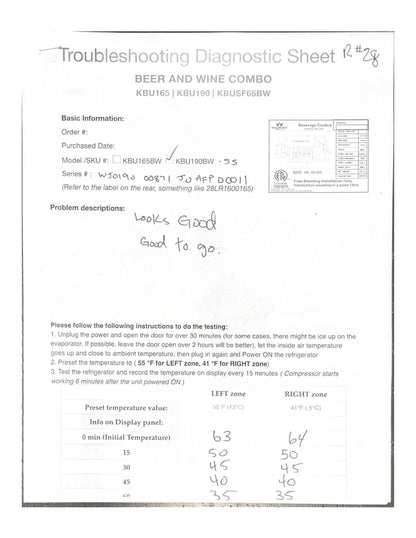 Troubleshooting Diagnostic Sheet R#28
BEER AND WINE COMBO
KBU165 | KBU190 | KBUSF66BW
Basic Information:
Order #:
Purchased Date:
Model /SKU #: KBU165BW ✓ KBU190BW -SS
(Refer to the label on the rear, something like 28LR1600165)
Series # : WJ0190 00871 JU AFP 00011
Beverage Coolers
Free Standing Installation Only
Problem descriptions:
Looks Good
Good to go.
Please follow the following instructions to do the testing:
1. Unplug the power and open the door for over 30 minutes (for some cases, there might be ice up on the
evaporator. If possible, leave the door open over 2 hours will be better), let the inside air temperature
goes up and close to ambient temperature, then plug in again and Power ON the refrigerator
2. Preset the temperature to ( 55 °F for LEFT zone, 41 °F for RIGHT zone)
3. Test the refrigerator and record the temperature on display every 15 minutes ( Compressor starts
working 6 minutes after the unit powered ON )
LEFT zone RIGHT zone
Preset temperature value: 55°F (13°C) 41°F ( 5°C)
Info on Display panel:
0 min (Initial Temperature) 63 64
15 50 50
30 45 45
45 40 40
60 35 35